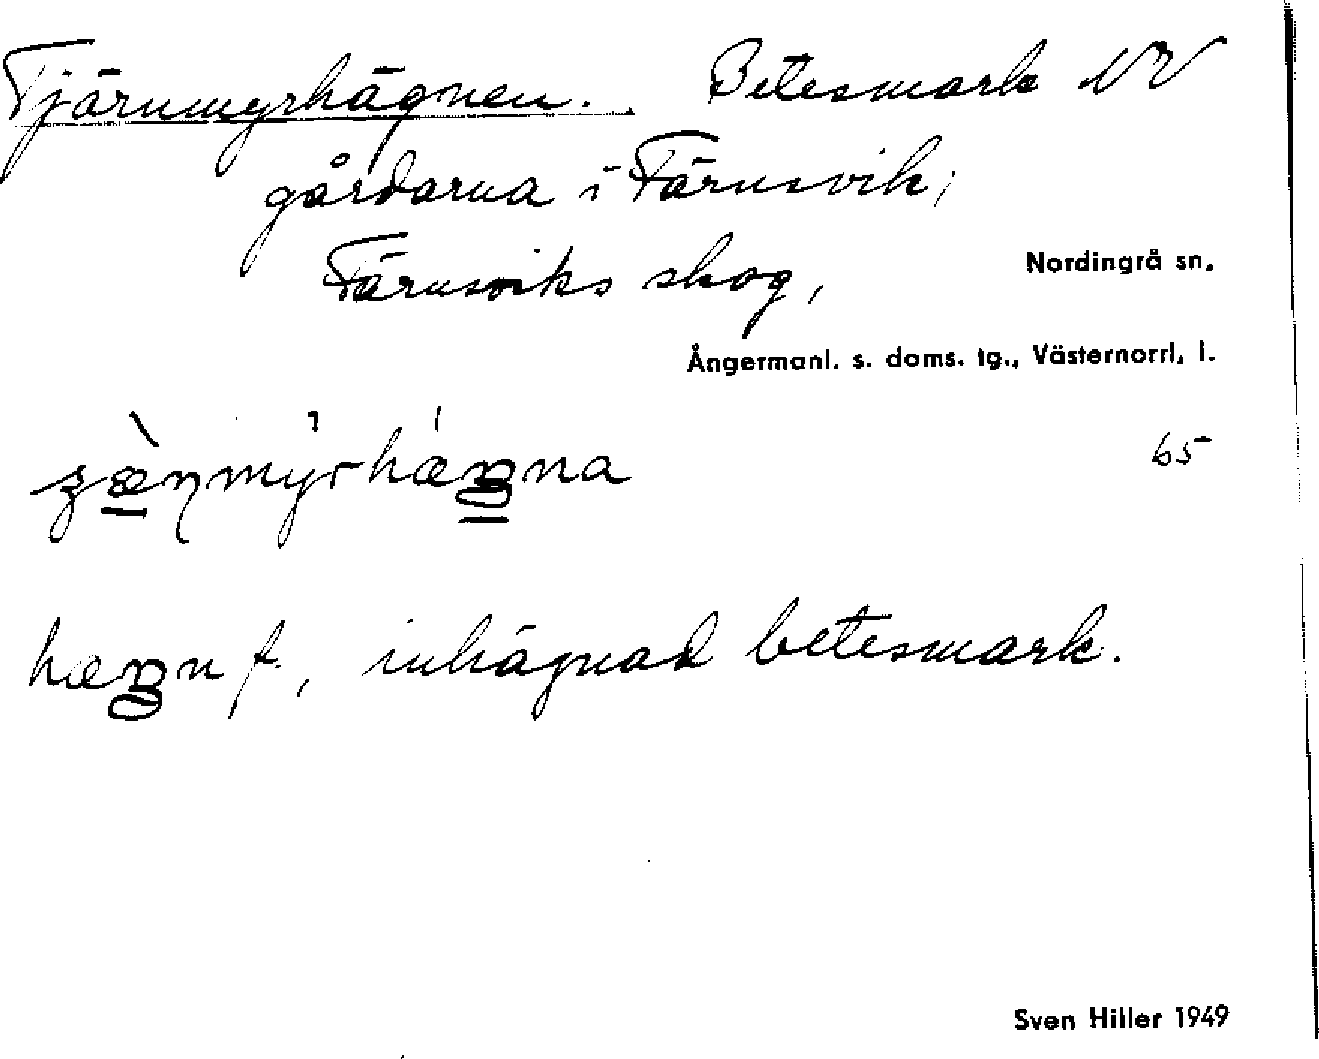 Tjärnmyrhägnen. Betesmark NV
gårdarna i Färnsvik,
Färnsviks skog,
Nordingrå sn.
Ångermanl. s. doms. tg., Västernorrl. l.
65
hæŋn f., inhägnad betesmark.
Sven Hiller 1949